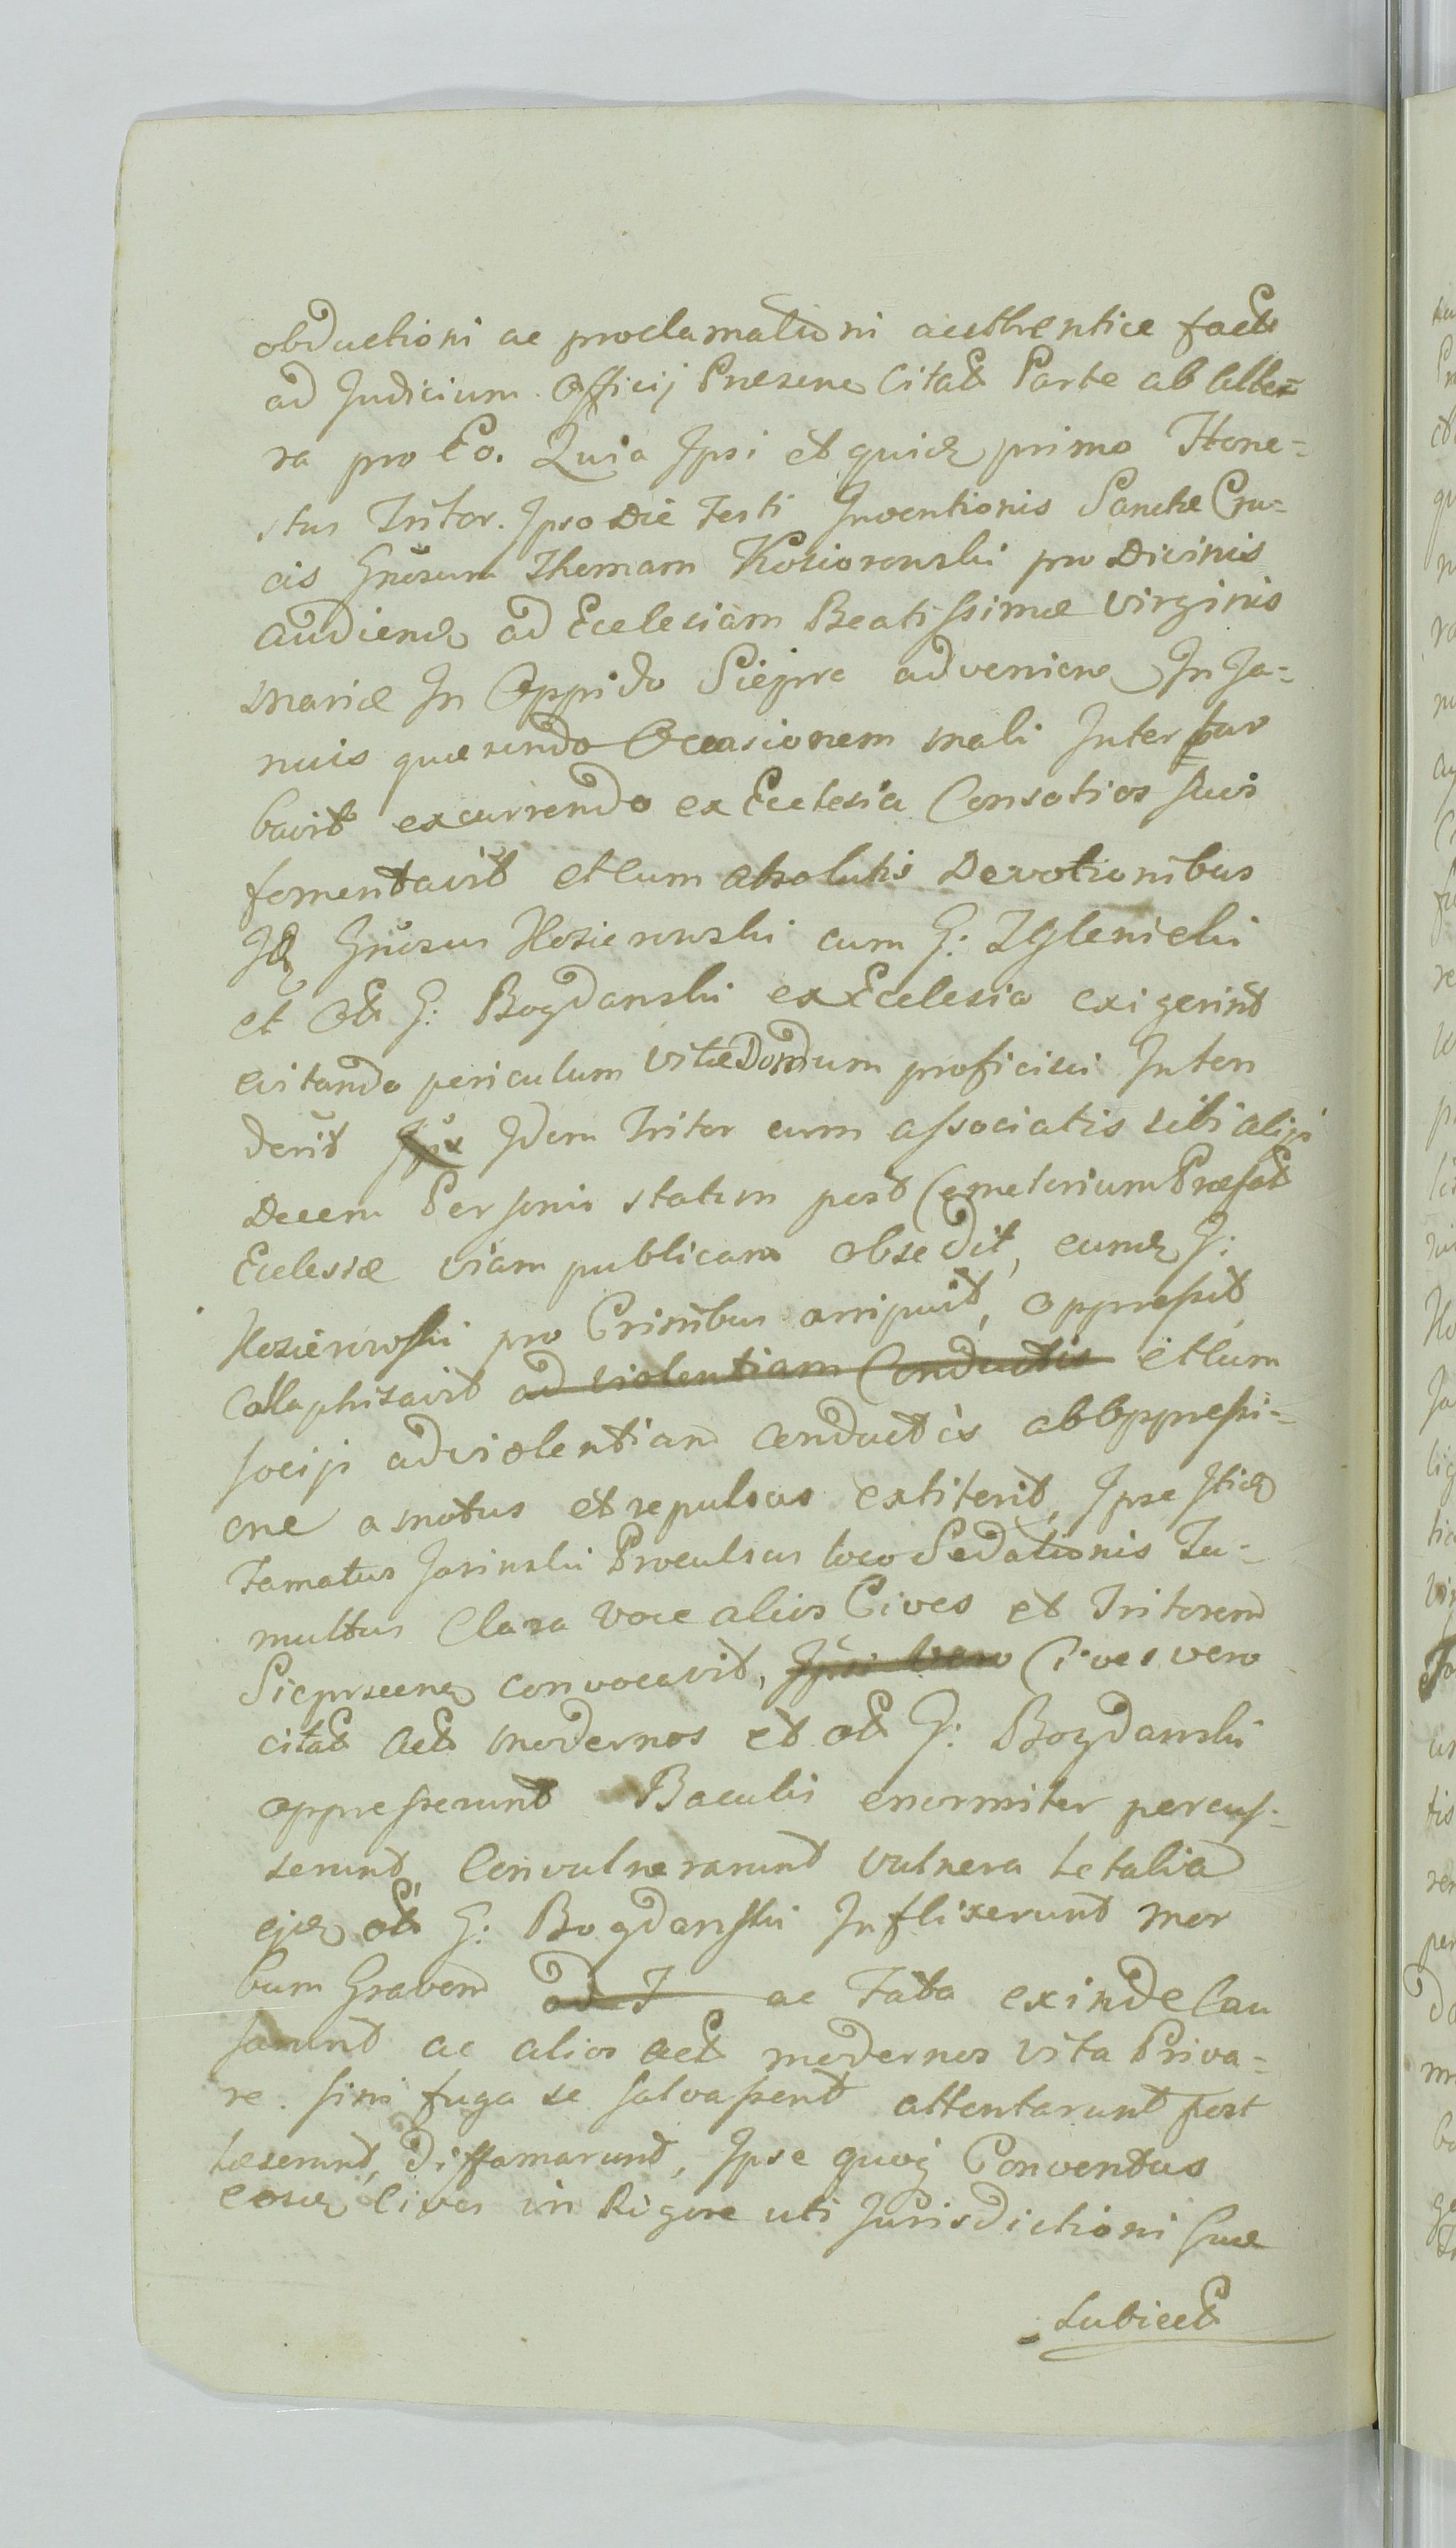 obductioni ac proclamationi authentice fact
ad Judicium Officij Præsens Citat Parte ab alte=
ra pro Eo. Quia Ipsi et quid primo Hone=
stus Tritor. Ipso Die Festi Inventionis Sanctæ Cru=
cis Gnosum Thomam Kosiorowski pro Divinis
audiend ad Ecclesiam Beatissimæ Virginis
Mariæ In Oppido Sieprc adveniens In Ja=
nuis quærendo Occasionem mali Inter
bavit excurrendo ex Ecclesia Consotios suos
fomentavit et cum absolutis Devotionibus
Id Gnosus Kosierowski cum G: Zglenicki
et Ol G: Bogdanski ex Ecclesia exigerint
evitando periculum vitæ Domum proficisci Inten
derit Idem Tritor cum associatis sibi alijs
Decem Personis statim post Cemeterium Præfat
Ecclesiæ viam publicam obsedit, eumd G:
Kosierowski pro Crinibus arripuit, oppressit,
Collaphisavit ad violentiam Conductis et cum
socijs ad violentiam conductis ab oppressi=
one amotus et repulsus extiterit, Ipse Itid
Famatus Jasinski Proculsus loco Sedationis Tu=
multus Clara voce alios Cives et Tritorem
Sieprscens convocavit, Ipsi vero Cives vero
citat Act modernos et ol G: Bogdanski
oppresserunt Baculis enormiter percus=
serunt, Convulnerarunt vulnera Letalia
ejd ol G: Bogdanski Inflixerunt mor
bum Gravem ad F ac Fata exinde Cau
sarunt ac alios act modernos vita Priva=
re. sini fuga se salvassent attentarunt post
læserunt, Diffamarunt, Ipse quoq Conventus
eosd Cives in Rigore uti Jurisdictioni suæ
Subiect